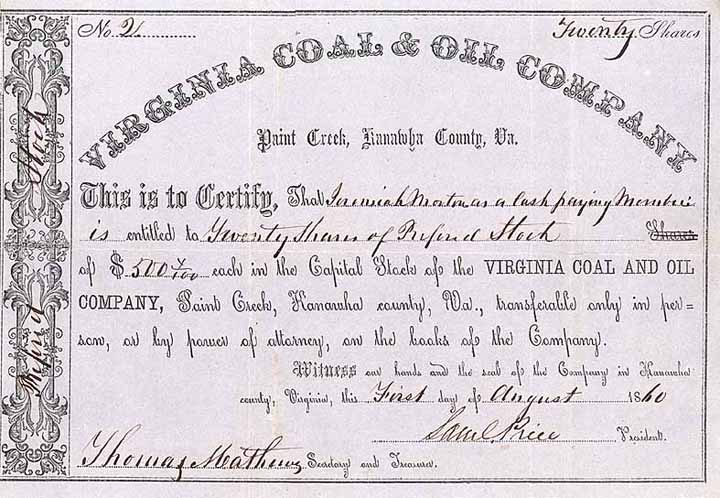 No. 21
Twenty Shares
VIRGINIA COAL & OIL COMPANY
Paint Creek, Kanawha County, Va.
This is to Certify, That Jeremiah Morton as a Cash paying Member
is entitled to Twenty Shares of Prefered Stock Shares
of $ 500 each in the Capital Stock of the VIRGINIA COAL AND OIL
COMPANY, Paint Creek, Kanawha county, Va., transferable only in per-
son, or by power of attorney, on the books of the Company.
Witness our hands and the seal of the Company in Kanawha
county, Virginia, this First day of August 1860
Saml Price President.
Thomas Mathews Secretary and Treasurer.
Prefered Stock